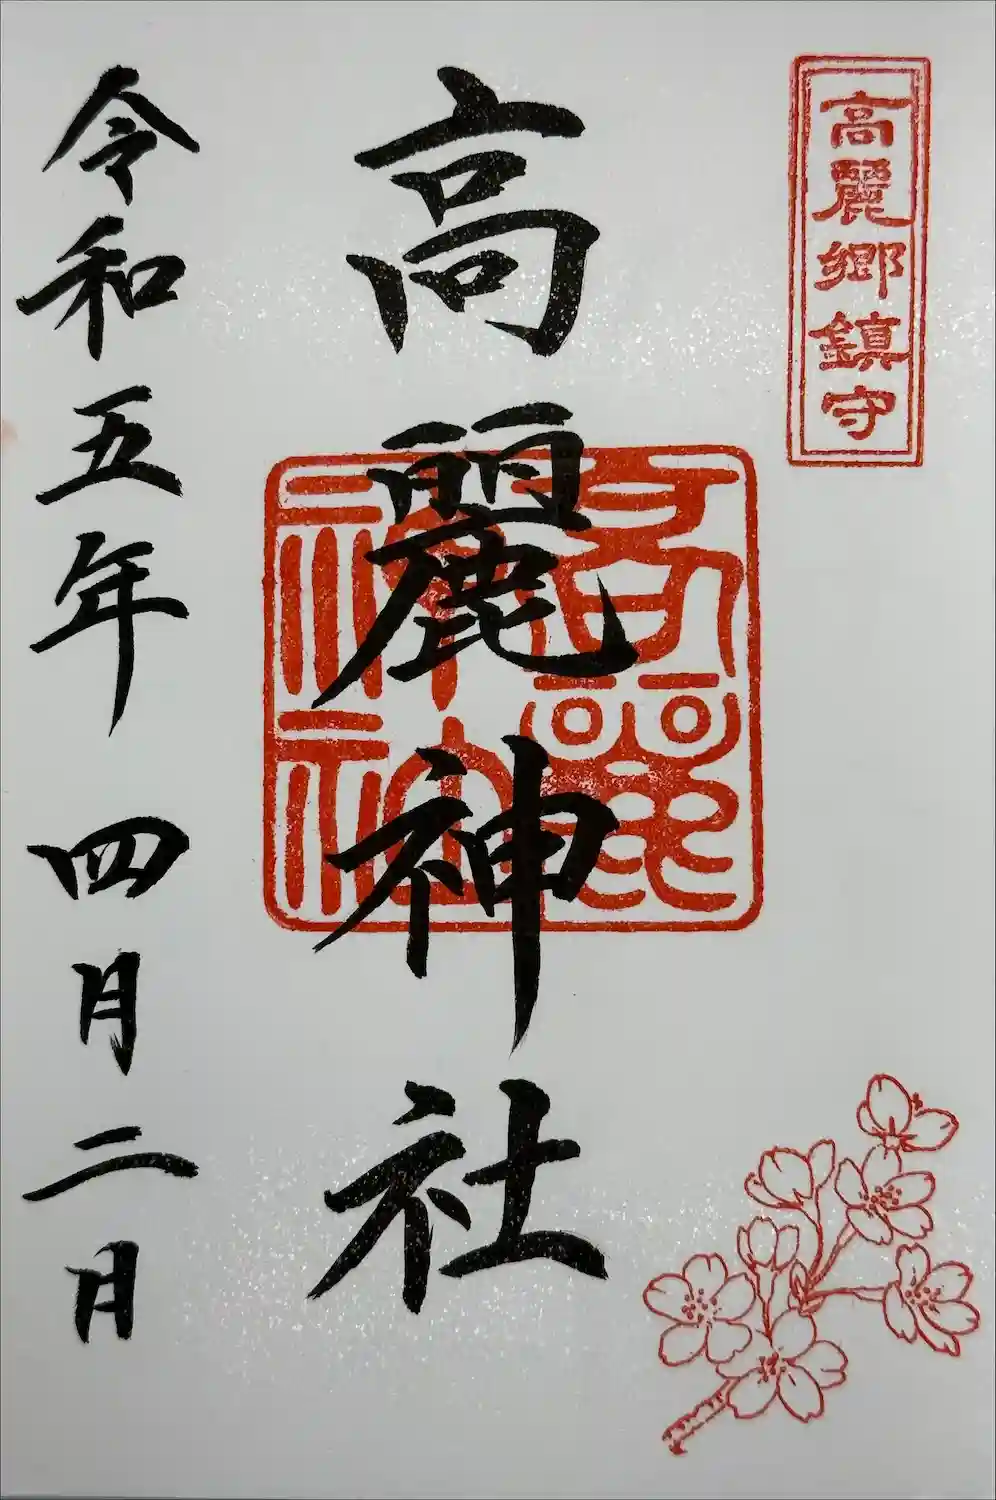 高麗郷鎮守
高麗神社
高麗神社
令和五年 四月二日